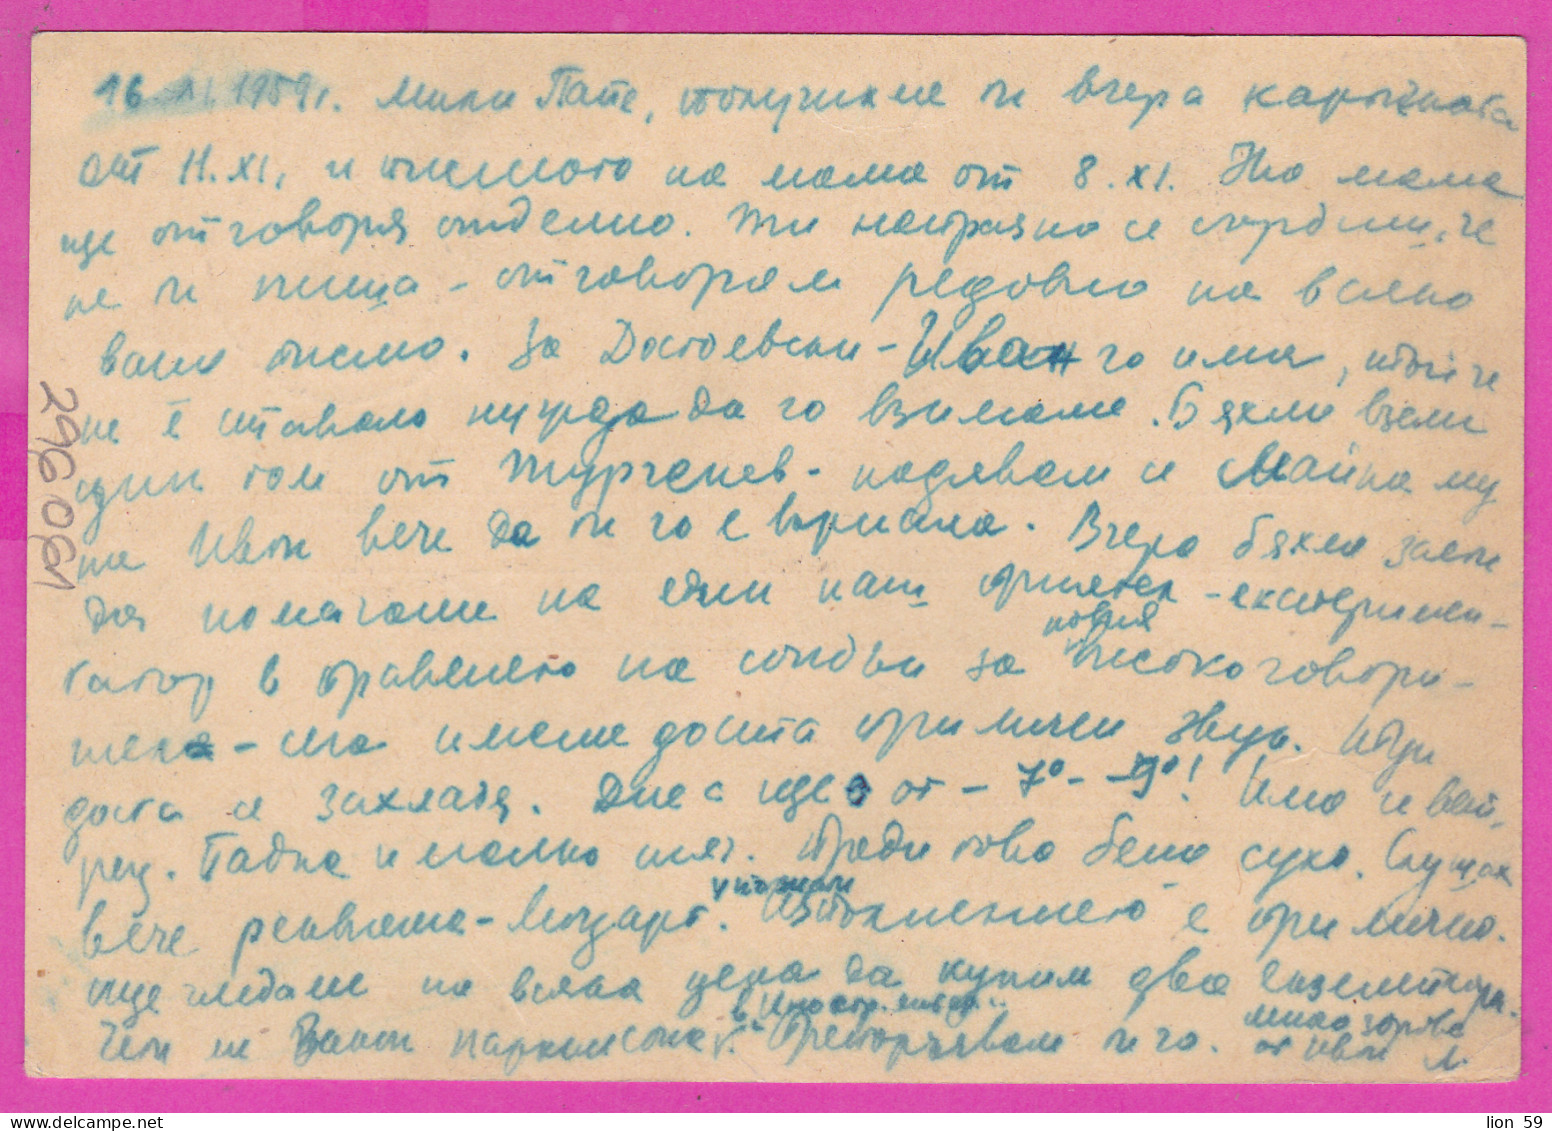 16.XI.1959г. Мили Пате, получихме ти вчера картичката
от 11.XI. и писмото на мама от 8.XI. На мама
ще отговоря отделно. Ти напразно се сърдиш, че
не ти пиша - отговарям редовно на всяко
ваше писмо. За Достоевски - Иван го има, тъй че
не е ставало нужда да го взимаме. Бяхме взели
един том от Тургенев - надявам се Майка му
на Иван вече да ти го е върнала. Вчера бяхме заети
да помагаме на един наш приятел - експеримен-
татор в правенето на сонди за новия високоговори-
тел - сега имаме доста приличен звук. Иначе
доста се захлади. Днес ще е от - 7° - -9°! Има и вят.
рец. Падна и малко сняг. Преди това беше сухо. Слушах
вече реквиема - Моцарт. Изпълнението е прилично.
ще гледаме на всяка цена да купим два екземпляра.
Чети в Иностр. литер. Препоръчвам ти го. много здраве
от Иван Л.
296061
lion 59